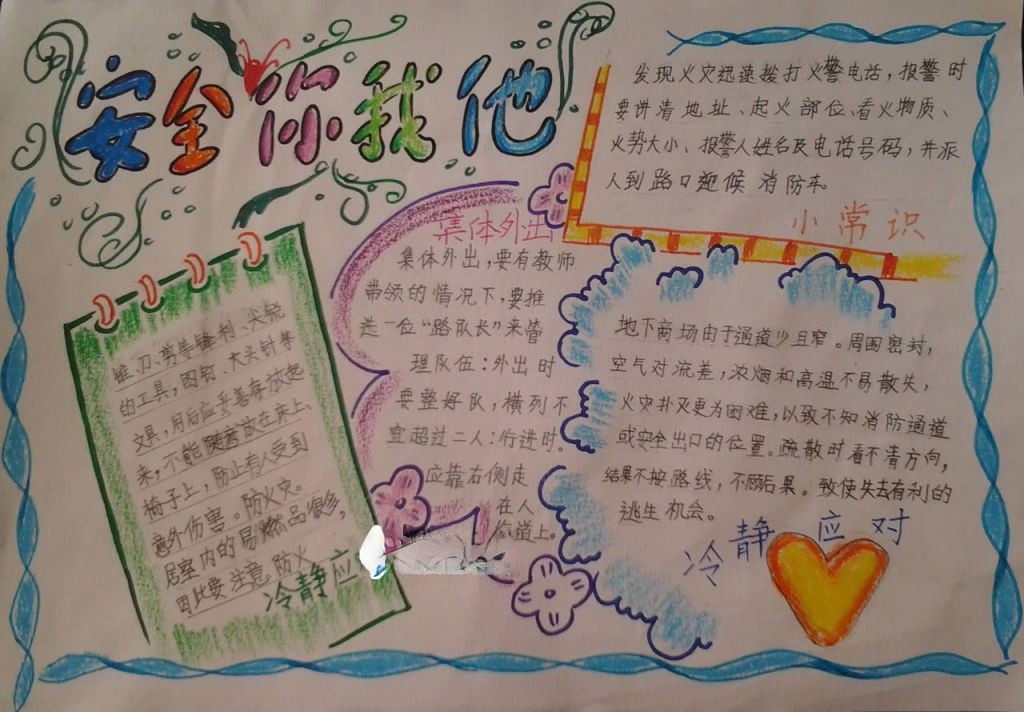 安全你我他
发现火灾迅速拨打火警电话，报警时
要讲清地址、起火部位、看火物质、
火势大小、报警人姓名及电话号码，并派
人到路口迎候消防车。
小常识
集体外出
集体外出，要有教师
带领的情况下，要推
选一位“路队长”来管
理队伍：外出时
要整好队，横列不
宜超过二人：行进时.
应靠右侧走
在人
行道上。
锥、刀、剪等锋利、尖锐
的工具，图钉、大头针等
文具，用后应妥善存放起
来，不能随意放在床上、
椅子上，防止有人受到
意外伤害。防火灾。
居室内的易燃品很多，
因此要注意防火
冷静应
地下商场由于通道少且窄。周围密封，
空气对流差，浓烟和高温不易散失，
火灾扑灭更为困难，以致不知消防通道
或安全出口的位置。疏散时看不清方向，
结果不按路线，不顾后果。致使失去有利的
逃生机会。
冷静应对